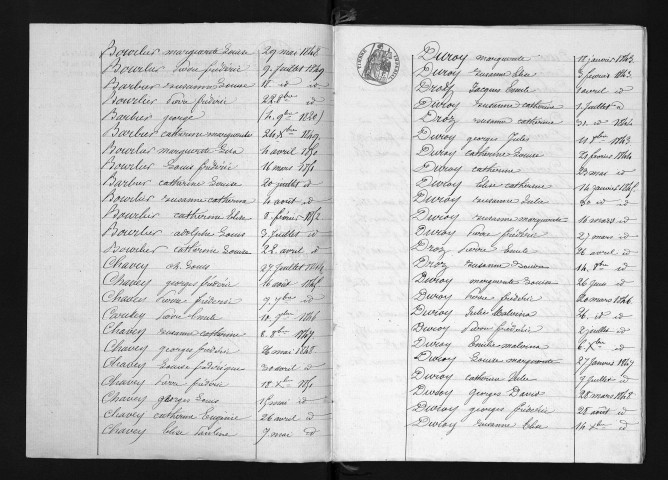 Bourlier marguerite Louise 29 mai 1848
Bourlier pierre frédéric 9 Juillet 1849
Barbier suzanne Louise 11 id id
Bourlier pierre frédéric 22 8bre id
Barbier george (4. 9bre 1840)
Barbier catherine marguerite 24 Xbre 1849
Bourlier marguerite 4 avril 1850
Bourlier Louis frédéric 16 mars 1851
Barbier catherine Louise 20 juillet id
Bourlier suzanne catherine 10 août id
Bourlier catherine Elise 8 février 1852
Bourlier adolphe Louis 3 Juillet id
Bourlier catherine Louise 22 avril id
Chavey ch. Louis 27 Juillet
Chavey georges frédéric août
Chavey pierre frédéric 9 9bre id
pierre Emile 10 9bre 1846
Chavey suzanne catherine 8. 8bre 1847
Chavey georges frédéric 26 mai 1848
Chavey Louise frédérique 30 avril id
Chavey pierre frédéric 18 Xbre 1850
Chavey georges Louis mai id
Chavey catherine Eugénie 26 avril id
Chavey Elise Pauline 7 mai id
Duroy marguerite 18 janvier 1843
Duroy suzanne Elise 3 février 1843
Droz Jacques Emile avril id
Duroy suzanne catherine 1 Juillet
Droz suzanne catherine 31 id
Duroy georges Jules 11 Xbre 1843
Duroy catherine Louise 20 février 1844
Duroy catherine 23 mai id
Duroy Elise catherine 14 janvier 1845
Duroy suzanne Julie 30 id id
Duroy suzanne marguerite 16 mars id
Duroy pierre frédéric 27 mars id
Droz pierre Emile 26 avril id
Droz suzanne Louise 14. 8bre id
Duroy marguerite Louise 26 Juin id
Duroy pierre frédéric 20 mars 1846
Duroy Julie Malvina 26 id id
Duroy pierre frédéric 2 juillet id
Duroy Emilie malvina 6. Xbre id
Duroy Louise marguerite 27 Janvier 1847
Duroy catherine Julie 9 Juillet id
Duroy georges David 28 mars 1848
Duroy georges frédéric 28 août id
Duroy suzanne Elise 14 Xbre id